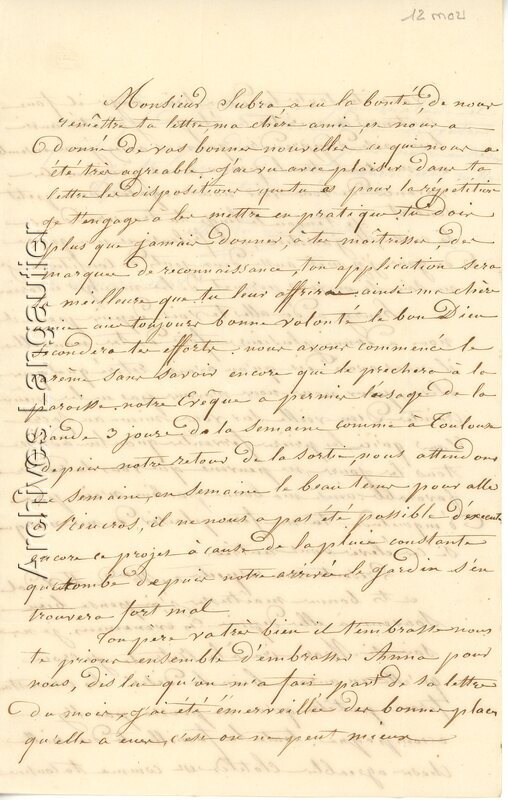 12 mai
Monsieur Subra, a eu la bonté, de nous
remêttre ta lettre ma chère amie, et nous a
donné de vos bonnes nouvelles ce qui nous a
été très agreable. j'ai vu avec plaisir dans ta
lettre les dispositions que tu as pour la répétition
je t'engage à les mettre en pratique tu dois
plus que jamais donner, à tes maîtresses, des
marques de reconnaissance, ton application sera
la meilleure que tu leur offriras ainsi ma chère
amie aie toujours bonne volonté le bon Dieu
secondera tes efforts. nous avons commencé le
carême sans savoir encore qui le prêchera à la
paroisse. notre Evêque a permis l'usage de la
viande 3 jours de la semaine comme à Toulouse
depuis notre retour de la sortie, nous attendons
de semaine, en semaine le beau tems pour aller
à Rieucros, il ne nous a pas été possible d'executer
encore ce projet à cause de la pluie constante
qui tombe depuis notre arrivée le jardin s'en
trouvera fort mal
Ton père va très bien il t'embrasse nous
te prions ensemble d'embrasser Anna pour
nous, dis lui qu'on m'a fait part de sa lettre
du mois, j'ai été émerveillée des bonnes places
qu'elle a eues, c'est on ne peut mieux
Archives Langautier